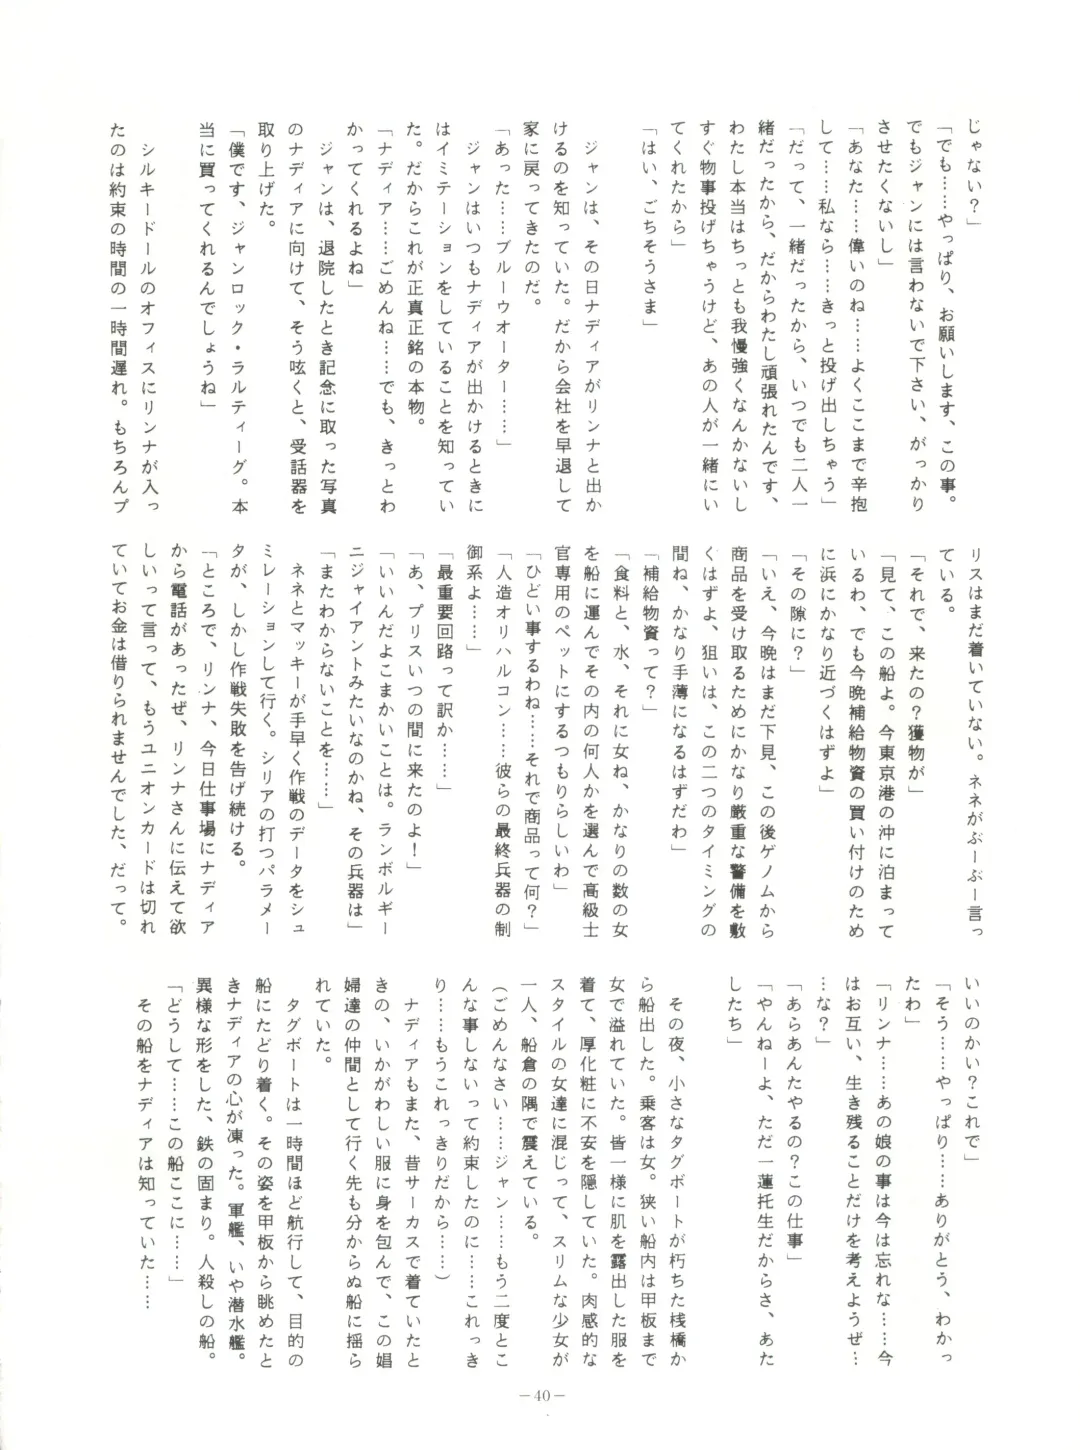 じゃない？」
「でも……やっぱり、お願いします、この事。
でもジャンには言わないで下さい、がっかり
させたくないし」
「あなた……偉いのね……よくここまで辛抱
して……私なら……きっと投げ出しちゃう」
「だって、一緒だったから、いつでも二人一
緒だったから、だからわたし頑張れたんです、
わたし本当はちっとも我慢強くなんかないし
すぐ物事投げちゃうけど、あの人が一緒にい
てくれたから」
「はい、ごちそうさま」
ジャンは、その日ナディアがリンナと出か
けるのを知っていた。だから会社を早退して
家に戻ってきたのだ。
「あった……ブルーウオーター……」
ジャンはいつもナディアが出かけるときに
はイミテーションをしていることを知ってい
た。だからこれが正真正銘の本物。
「ナディア……ごめんね……でも、きっとわ
かってくれるよね」
ジャンは、退院したとき記念に取った写真
のナディアに向けて、そう呟くと、受話器を
取り上げた。
「僕です、ジャンロック・ラルティーグ。本
当に買ってくれるんでしょうね」
シルキードールのオフィスにリンナが入っ
たのは約束の時間の一時間遅れ。もちろんプ
リスはまだ着いていない。ネネがぶーぶー言っ
ている。
「それで、来たの？獲物が」
「見て、この船よ。今東京港の沖に泊まって
いるわ、でも今晩補給物資の買い付けのため
に浜にかなり近づくはずよ」
「その隙に？」
「いえ、今晩はまだ下見、この後ゲノムから
商品を受け取るためにかなり厳重な警備を敷
くはずよ、狙いは、この二つのタイミングの
間ね、かなり手薄になるはずだわ」
「補給物資って？」
「食料と、水、それに女ね、かなりの数の女
を船に運んでその内の何人かを選んで高級士
官専用のペットにするつもりらしいわ」
「ひどい事するわね……それで商品って何？」
「人造オリハルコン……彼らの最終兵器の制
御系よ……」
「最重要回路って訳か……」
「あ、プリスいつの間に来たのよ！」
「いいんだよこまかいことは。ランボルギー
ニジャイアントみたいなのかね、その兵器は」
「またわからないことを……」
ネネとマッキーが手早く作戦のデータをシュ
ミレーションして行く。シリアの打つパラメー
タが、しかし作戦失敗を告げ続ける。
「ところで、リンナ、今日仕事場にナディア
から電話があったぜ、リンナさんに伝えて欲
しいって言って、もうユニオンカードは切れ
ていてお金は借りられませんでした、だって。
いいのかい？これで」
「そう……やっぱり……ありがとう、わかっ
たわ」
「リンナ……あの娘の事は今は忘れな……今
はお互い、生き残ることだけを考えようぜ…
…な？」
「あらあんたやるの？この仕事」
「やんねーよ、ただ一蓮托生だからさ、あた
したち」
その夜、小さなタグボートが朽ちた桟橋か
ら船出した。乗客は女。狭い船内は甲板まで
女で溢れていた。皆一様に肌を露出した服を
着て、厚化粧に不安を隠していた。肉感的な
スタイルの女達に混じって、スリムな少女が
一人、船倉の隅で震えている。
（ごめんなさい……ジャン……もう二度とこ
んな事しないって約束したのに……これっき
り……もうこれっきりだから……）
ナディアもまた、昔サーカスで着ていたと
きの、いかがわしい服に身を包んで、この娼
婦達の仲間として行く先も分からぬ船に揺ら
れていた。
タグボートは一時間ほど航行して、目的の
船にたどり着く。その姿を甲板から眺めたと
きナディアの心が凍った。軍艦、いや潜水艦。
異様な形をした、鉄の固まり。人殺しの船。
「どうして……この船ここに……」
その船をナディアは知っていた……
－40－